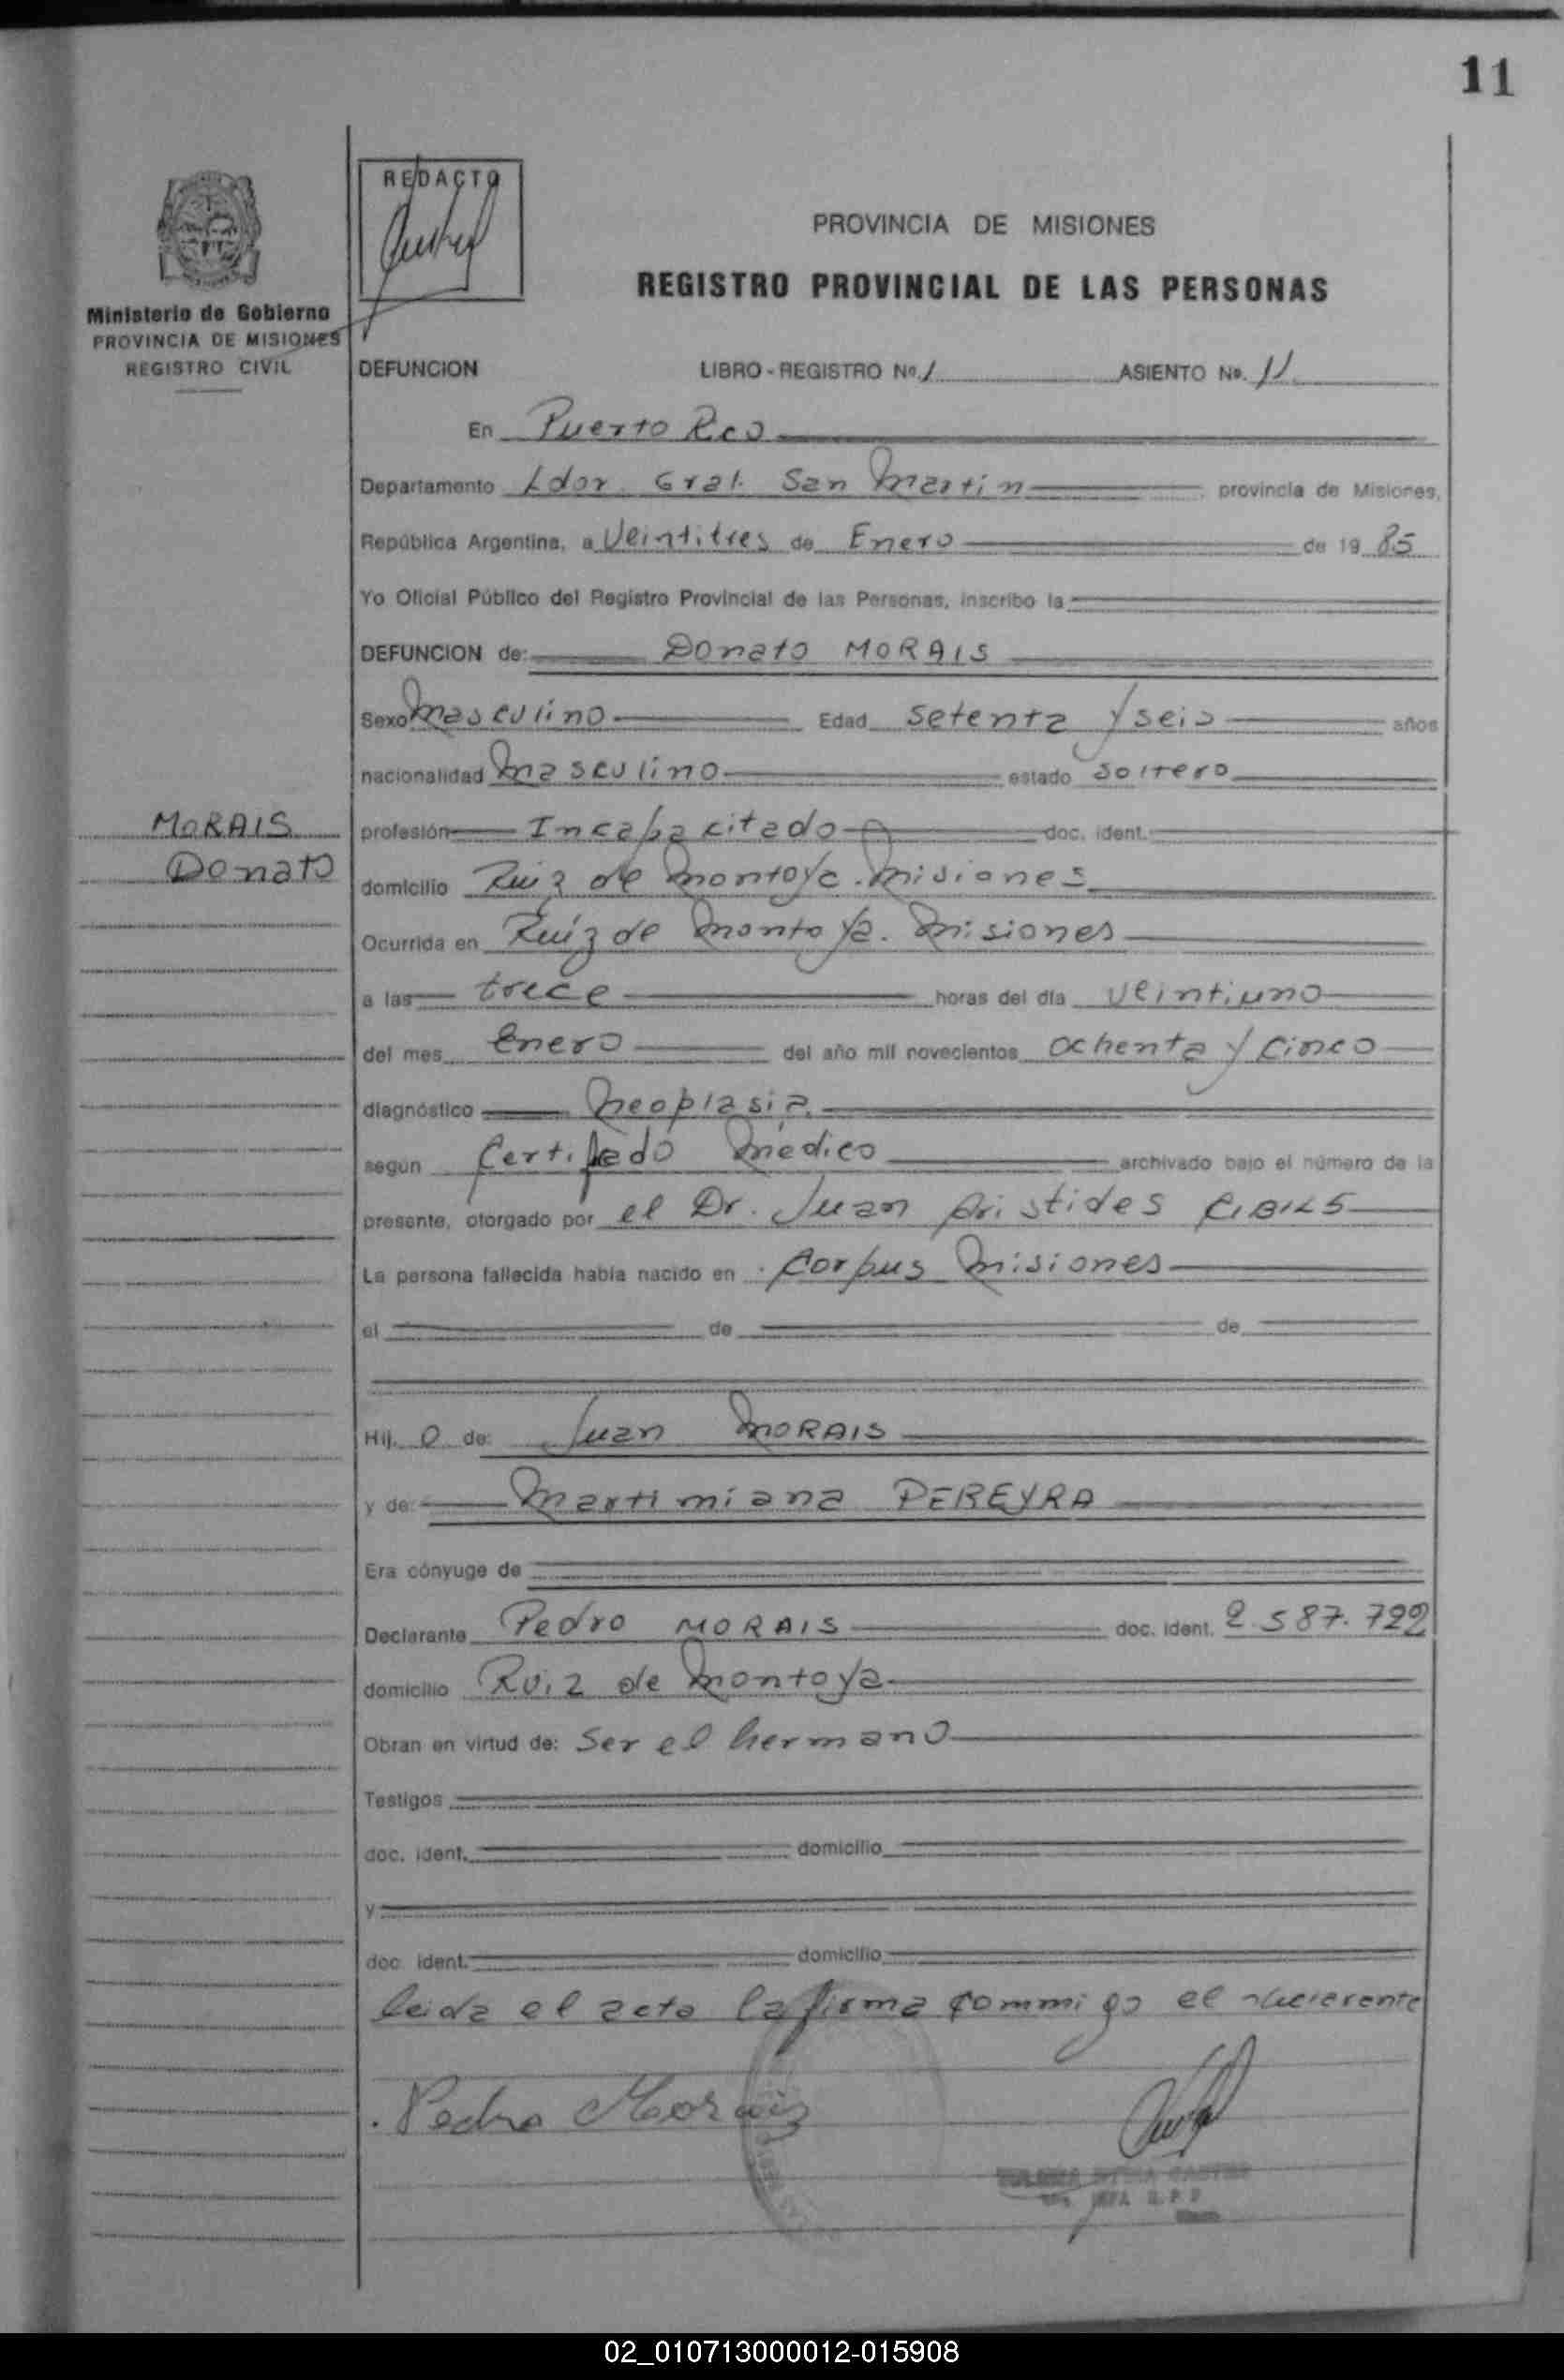 11
REDACTO
PROVINCIA DE MISIONES
REGISTRO PROVINCIAL DE LAS PERSONAS
Ministerio de Gobierno
PROVINCIA DE MISIONES
REGISTRO CIVIL
DEFUNCION LIBRO - REGISTRO No. 1 ASIENTO No. 11
En Puerto Rco
Departamento Ldor. Gral. San Martin provincia de Misiones,
República Argentina, a Veintitres de Enero de 19 85
Yo Oficial Público del Registro Provincial de las Personas, inscribo la
DEFUNCION de: Donato MORAIS
Sexo Masculino Edad setenta y seis años
nacionalidad Masculino estado soltero
MORAIS
Donato
profesión Incapacitado doc. ident.
domicilio Ruiz de Montoya. Misiones
Ocurrida en Ruíz de Montoya. Misiones
a las trece horas del día veintiuno
del mes Enero del año mil novecientos ochenta y cinco
diagnóstico Neoplasia.
según Médico archivado bajo el número de la
presente, otorgado por el Dr. Juan Aristides CIBILS
La persona fallecida había nacido en Corpus Misiones
el de de
Hij. o de: Juan MORAIS
y de: Martimiana PEREYRA
Era cónyuge de
Declarante Pedro MORAIS doc. ident. 2.587.722
domicilio Ruiz de Montoya
Obran en virtud de: Ser el hermano
Testigos
doc. ident. domicilio
y
doc. ident. domicilio
leida el acta la firma commigo el
Pedro Morais
02_010713000012-015908